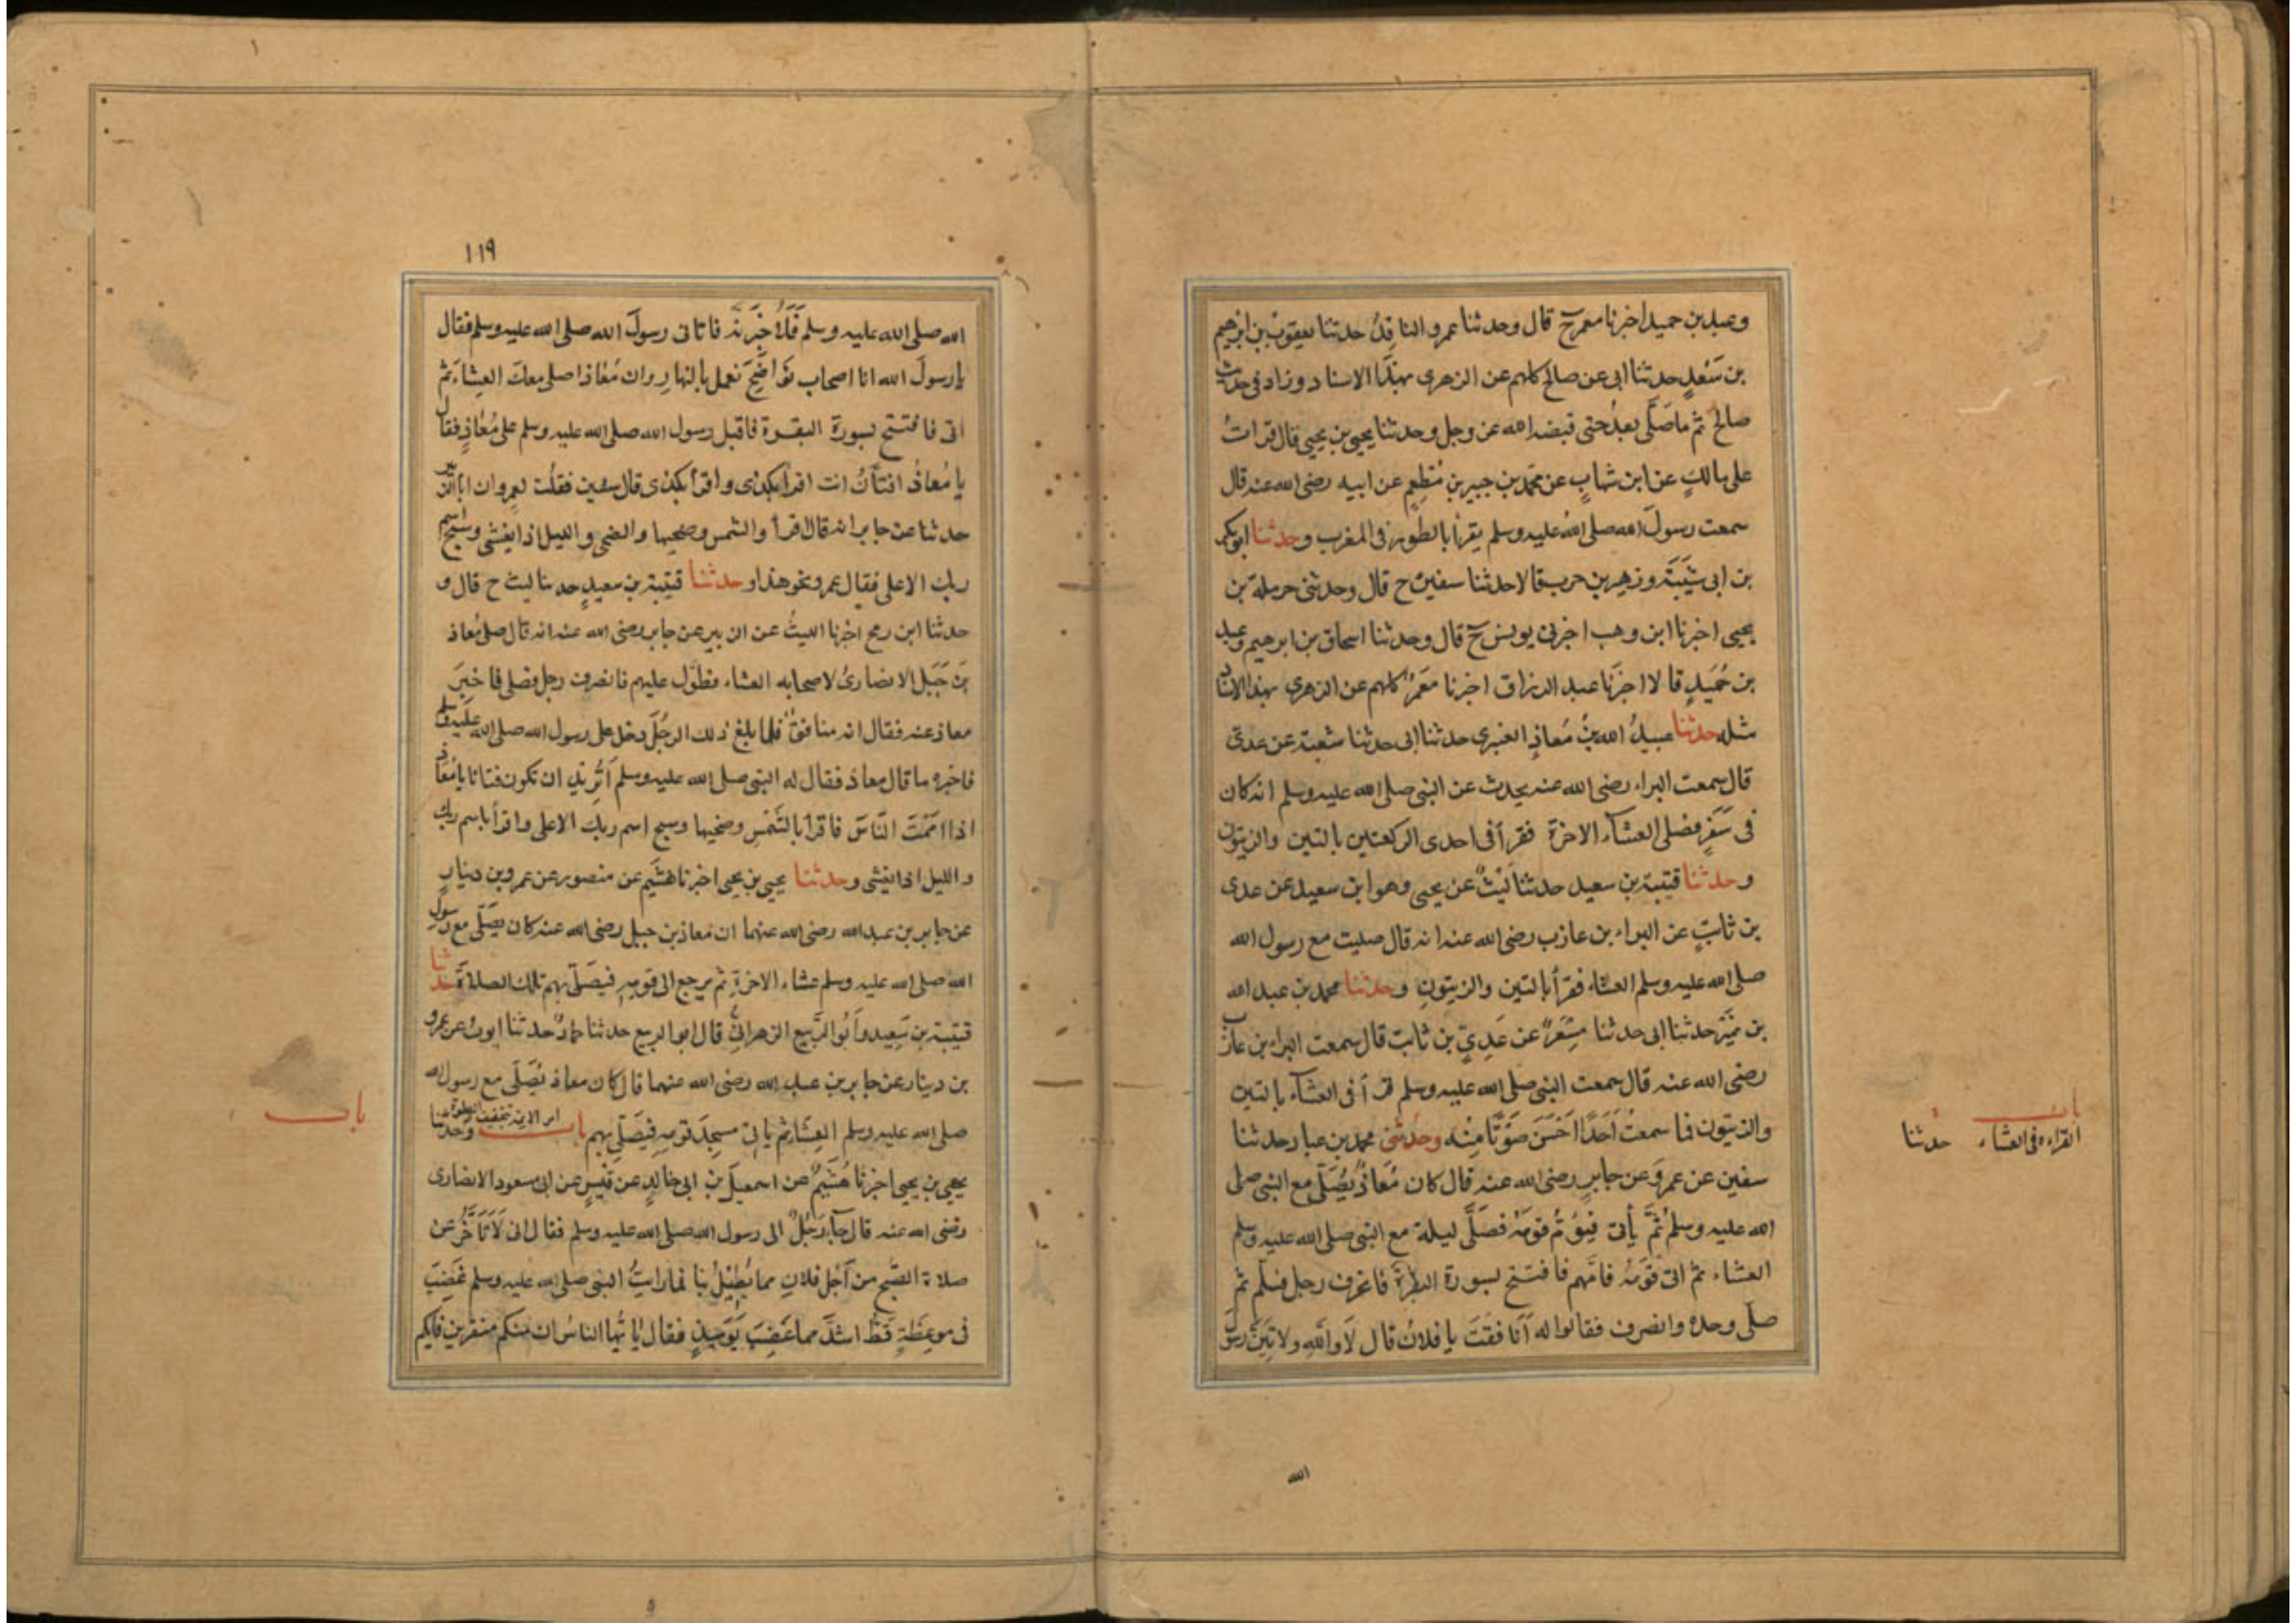 وعبد بن حميد اخبرنا معمر ح قال وحدثنا عمرو الناقِدُ حدثنا يعقوب بن ابرهيم
بن سَعْدٍ حدثنا ابى عن صالح كلهم عن الزهرى بهذا الاسناد وزاد فى حديث
صالح ثم ما صَلَّى بعدُ حتى قبضه الله عز وجل وحدثنا يحيى بن يحيى قال قراتُ
على مالكٍ عن ابن شهابٍ عن محمد بن جبير بنِ مُطْعِمٍ عن ابيه رضى الله عنه قال
سمعت رسولَ الله صلى اللهُ عليه وسلم يقرأ بالطور فى المغرب وحدثنا ابوبكر
بن ابى شَيْبَةَ وزهير بن حرب قالا حدثنا سفين ح قال وحدثنى حرملة بن
يحيى اخبرنا ابن وهب اخبرنى يونس ح قال وحدثنا اسحاق بن ابرهيم وعبد
بن حُمَيدٍ قالا اخبَرَنا عبد الرزاق اخبرنا مَعْمَرٌ كلهم عن الزهرى بهذا الاسناد
مثله حدثنا عبيدُ الله بنُ مُعاذٍ العنبرى حدثنا ابى حدثنا شعبة عن عدى
قال سمعت البراء رضى الله عنه يحدث عن النبى صلى الله عليه وسلم انه كان
فى سَفَرٍ فصلى العشآء الاخرة فقرأ فى احدى الركعتين بالتين والزيتون
وحدثنا قتيبة بن سعيد حدثنا لَيْثٌ عن يحيى وهو ابن سعيد عن عدى
بن ثابتٍ عن البراء بن عازب رضى الله عنه انه قال صليت مع رسول الله
صلى الله عليه وسلم العشاء فقرأ بالتين والزيتونِ وحدثنا محمد بن عبد الله
بن نميَر حدثنا ابى حدثنا مِسْعَرٌ عن عَدِىِّ بن ثابت قال سمعت البراء بن عازب
رضى الله عنه قال سمعت النبى صلى الله عليه وسلم قرأ فى العشآء بالتين
والزيتون فما سمعتُ اَحَدًا اَحْسَنَ صَوْتًا مِنْه وحدثنى محمد بن عباد حدثنا
سفين عن عمرو عن جابرٍ رضى الله عنه قال كان مُعَاذٌ يُصَلِّى مع النبى صلى
الله عليه وسلم ثُمَّ يأتى فيَؤُمُّ قومَهُ فصَلَّى ليلة مع النبى صلى الله عليه وسلم
العشاء ثم اتى قَوْمَهُ فامَّهم فافتتح بسورة البقرة فانحرف رجل فسلم ثم
صلى وحده وانصرف فقالوا له اَنافقتَ يا فلانُ قال لَا وَاللّٰهِ ولاتِيَنَّ رسول
الله
باب
القراءة فى العشاء حدثنا
١١٩
الله صلى الله عليه وسلم فَلَاُخْبِرَنَّهُ فاتاتى رسولَ الله صلى الله عليه وسلم فقال
يارسولَ الله انا اصحاب نَوَاضِحَ نعمل بالنهارِ وان مُعَاذا صلى معكَ العِشاءَ ثم
اتى فافتتح بسورة البقرة فاقبل رسول الله صلى الله عليه وسلم على مُعَاذٍ فقال
يا مُعَاذُ افتَّانٌ انت اقرأ بكذى واقرأ بكذى قال سفين فقلْت لعمرو ان ابا الزبير
حدثنا عن جابر انه قال اقرأ والشمس وضحيها والضحى والليل اذا يغشى وسبح اسم
ربك الاعلى فقال عمرو نحو هذا وحدثنا قتيبة بن سعيدٍ حدثنا ليث ح قال و
حدثنا ابن رمح اخبرنا الليثُ عن ابى الزبير عن جابر رضى الله عنه انه قال صلى مُعاذ
بن جَبَلٍ الانصارىُّ لاصحابه العشاء فطَوَّل عليهم فانصرف رجل فصلى فاخبِرَ
معاذ عنه فقال انه منافق فلما بلغ ذلك الرجُلَ دخل على رسول الله صلى الله عليه وسلم
فاخبره ما قال معاذ فقال له النبى صلى الله عليه وسلم اَتُرِيْدُ ان تكون فتانا يا مُعَاذُ
اذا اَمَمْتَ النَّاسَ فاقرأ بالشَّمْسِ وضحيها وسبح اسم ربك الاعلى واقرأ باسم ربك
والليل اذا يغشى وحدثنا يحيى بن يحيى اخبرنا هشيم عن منصور عن عمرو بن دينارٍ
عن جابر بن عبد الله رضى الله عنهما ان معاذ بن جبل رضى الله عنه كان يُصَلِّى مع رسول
الله صلى الله عليه وسلم عشاء الاخرةِ ثم يرجع الى قومِهِ فيُصَلّى بهم تلك الصلاةَ حدثنا
قتيبة بن سَعِيد وَاَبُو الرَّبيع الزهرانىُّ قال ابو الربيع حدثنا حمادٌ حدثنا ايوبُ عن عمرو
بن دينار عن جابر بن عبد الله رضى الله عنهما قال كان معاذ يُصَلّى مع رسول الله
صلى الله عليه وسلم العِشَاءَ ثم يأتى مسجِدَ قومِهِ فيُصَلّى بهم باب امر الايمة بتخفيف الصلوة وحدثنا
يحيى بن يحيى اخبرنا هُشَيْمٌ عن اسمعيلَ بنِ ابى خالدٍ عن قَيْسٍ عن ابى مسعود الانصارى
رضى الله عنه قال جآءَ رَجُلٌ الى رسول الله صلى الله عليه وسلم فقال انى لَاَتَاَخَّرُ عن
صلاة الصُّبح من اَجْلِ فلانٍ مما يُطِيْلُ بنا فما رايتُ النبى صلى الله عليه وسلم غَضِبَ
فى موعِظَةٍ قَطُّ اشدَّ مما غَضِبَ يَوْمَئِذٍ فقال يَا ايُّها الناسُ ان منكم منفرين فايكم
باب